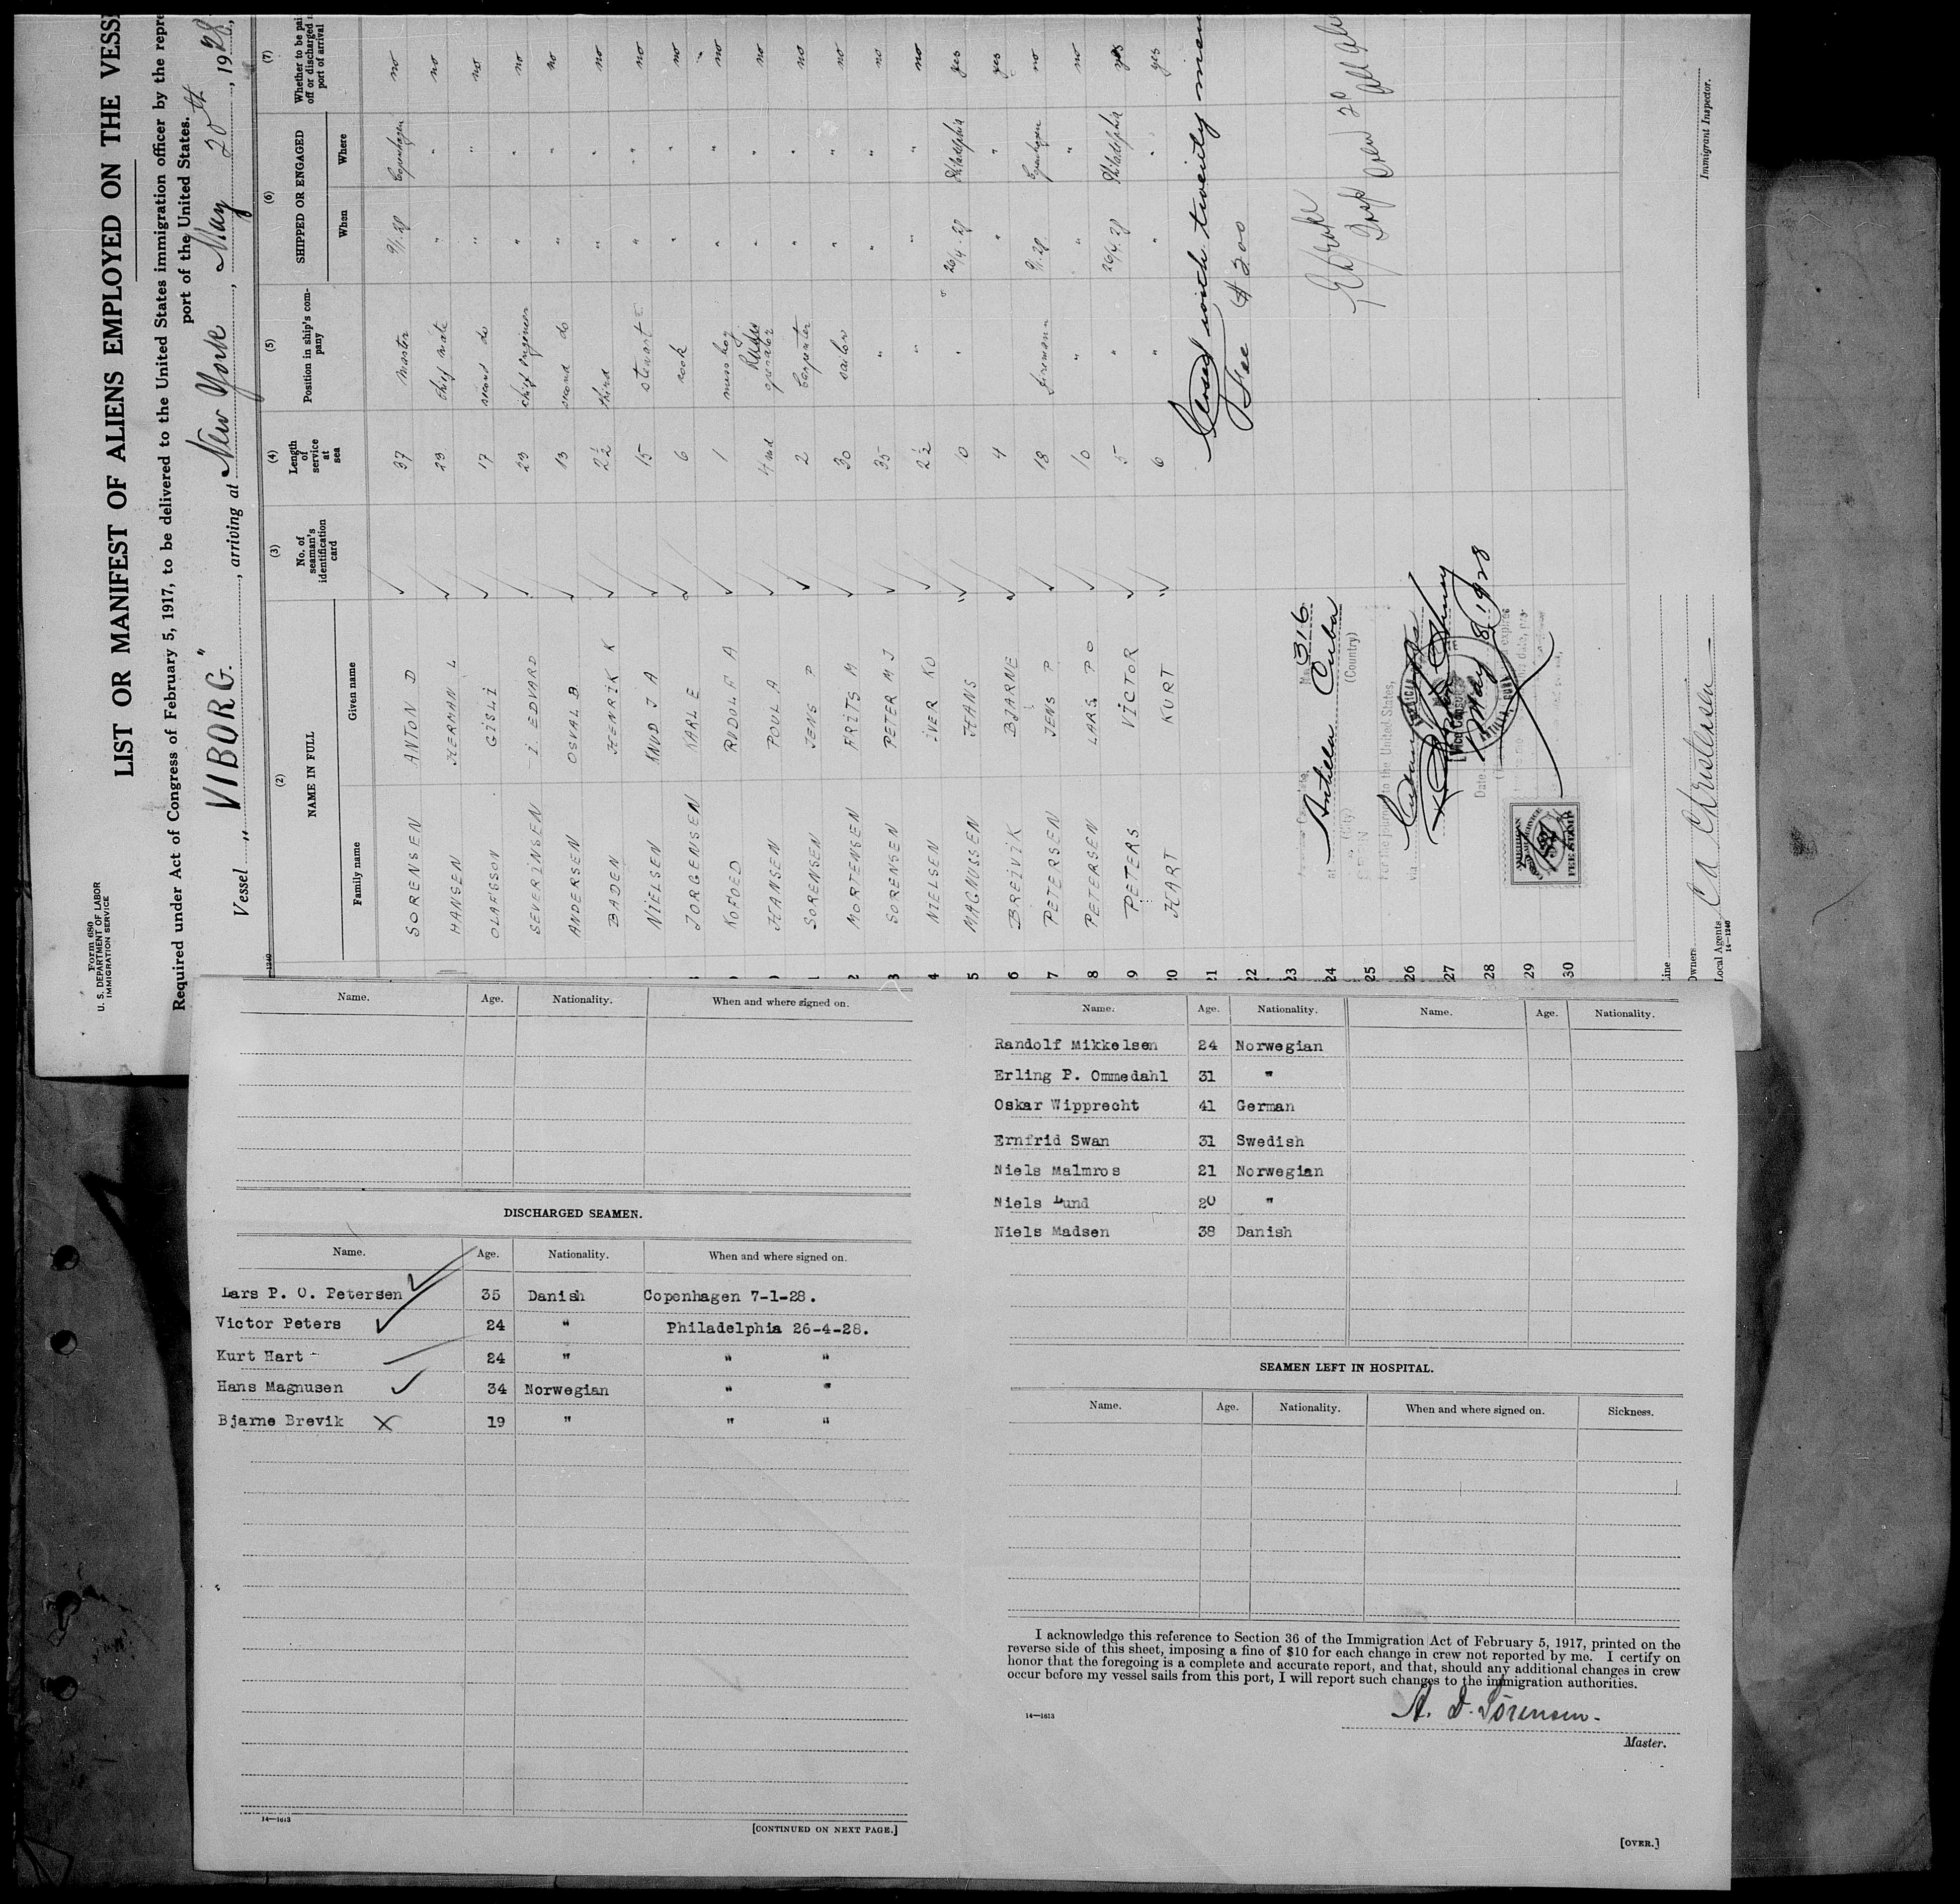 Form 680
U. S. DEPARTMENT OF LABOR
IMMIGRATION SERVICE
LIST OR MANIFEST OF ALIENS EMPLOYED ON THE VESS
Required under Act of Congress of February 5, 1917, to be delivered to the United States immigration officer by the repre
port of the United States.
Vessel "VIBORG.", arriving at New York, May 20th, 1928,
(2) (3) (4) (5) (6) (7)
NAME IN FULL No. of seaman's identification card Length of service at sea Position in ship's company SHIPPED OR ENGAGED Whether to be pai off or discharged port of arrival
Family name Given name When Where
SORENSEN ANTON D 37 master 9/1.28 Copenhagen no
HANSEN HERMAN L 23 chief mate " " no
OLAFSSON GISLI 17 second do " " no
SEVERINSEN I EDVARD 23 chief engineer " " no
ANDERSEN OSVAL B 13 second do " " no
BADEN HENRIK K 2½ third " " no
NIELSEN KNUD J A 15 stewart " " no
JORGENSEN KARL E 6 cook " " no
KOFOED RUDOLF A 1 mess boy " " no
HANSEN POUL A 4 md Radio operator " " no
1 SORENSEN JENS P 2 Carpenter " " no
2 MORTENSEN FRITS M 30 sailor " " no
3 SORENSEN PETER M J 35 " " " no
4 NIELSEN IVER KO 2½ " " " no
5 MAGNUSSEN HANS 10 " 26/4-28 Philadelphia yes
6 BREIVIK BJARNE 4 " " yes
7 PETERSEN JENS P 18 firemann 9/1.28 Copenhagen no
8 PETERSEN LARS P O 10 " " " no
9 PETERS VICTOR 5 " 26/4.28 Philadelphia yes
20 HART KURT 6 " " " yes
21 Closed with twenty men
22 Fee $ 200
23
24
25
26
27
28
29
30
No. 316
at Antilla Cuba
(City) (Country)
For the journey to the United States,
via
Vice Consul
Date May 8, 1928
FEE STAMP
Immigrant Inspector.
Line
Owners
Local Agents C A Christensen
14—1240
Name. Age. Nationality. When and where signed on.
DISCHARGED SEAMEN.
Name. Age. Nationality. When and where signed on.
Lars P. O. Petersen 35 Danish Copenhagen 7-1-28.
Victor Peters 24 " Philadelphia 26-4-28.
Kurt Hart 24 " " "
Hans Magnusen 34 Norwegian " "
Bjarne Brevik 19 " " "
14—1613
[CONTINUED ON NEXT PAGE.]
Name. Age. Nationality. Name. Age. Nationality.
Randolf Mikkelsen 24 Norwegian
Erling P. Ommedahl 31 "
Oskar Wipprecht 41 German
Ernfrid Swan 31 Swedish
Niels Malmros 21 Norwegian
Niels Lund 20 "
Niels Madsen 38 Danish
SEAMEN LEFT IN HOSPITAL.
Name. Age. Nationality. When and where signed on. Sickness.
I acknowledge this reference to Section 36 of the Immigration Act of February 5, 1917, printed on the
reverse side of this sheet, imposing a fine of $10 for each change in crew not reported by me. I certify on
honor that the foregoing is a complete and accurate report, and that, should any additional changes in crew
occur before my vessel sails from this port, I will report such changes to the immigration authorities.
A. D. Sörensen.
14—1613
Master.
[OVER.]